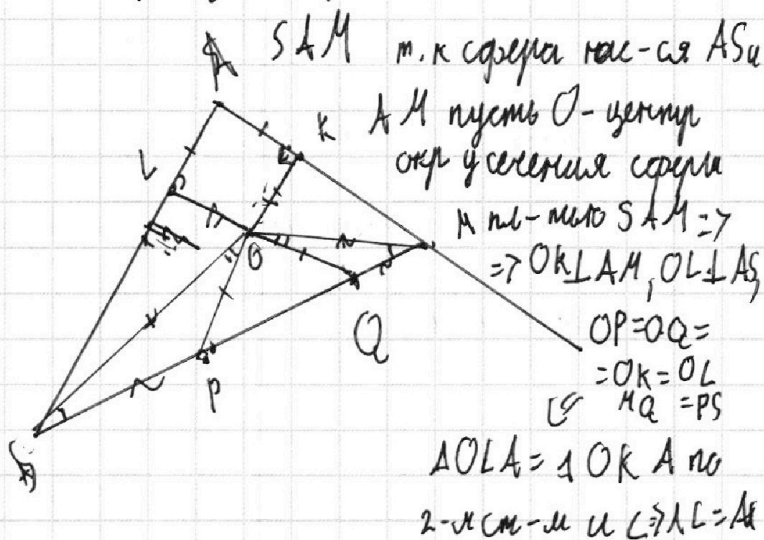 A SAM т.к сфера кас-ся AS и
K AM пусть O-центр
L окр усечения сферы
и пл-тью SAM =>
=> OK⊥AM, OL⊥AS,
O
Q OP=OQ=
P =OK=OL
MQ =PS
S ΔOLA = ΔOKA по
2-м ст-м и ∠=>AL=AK